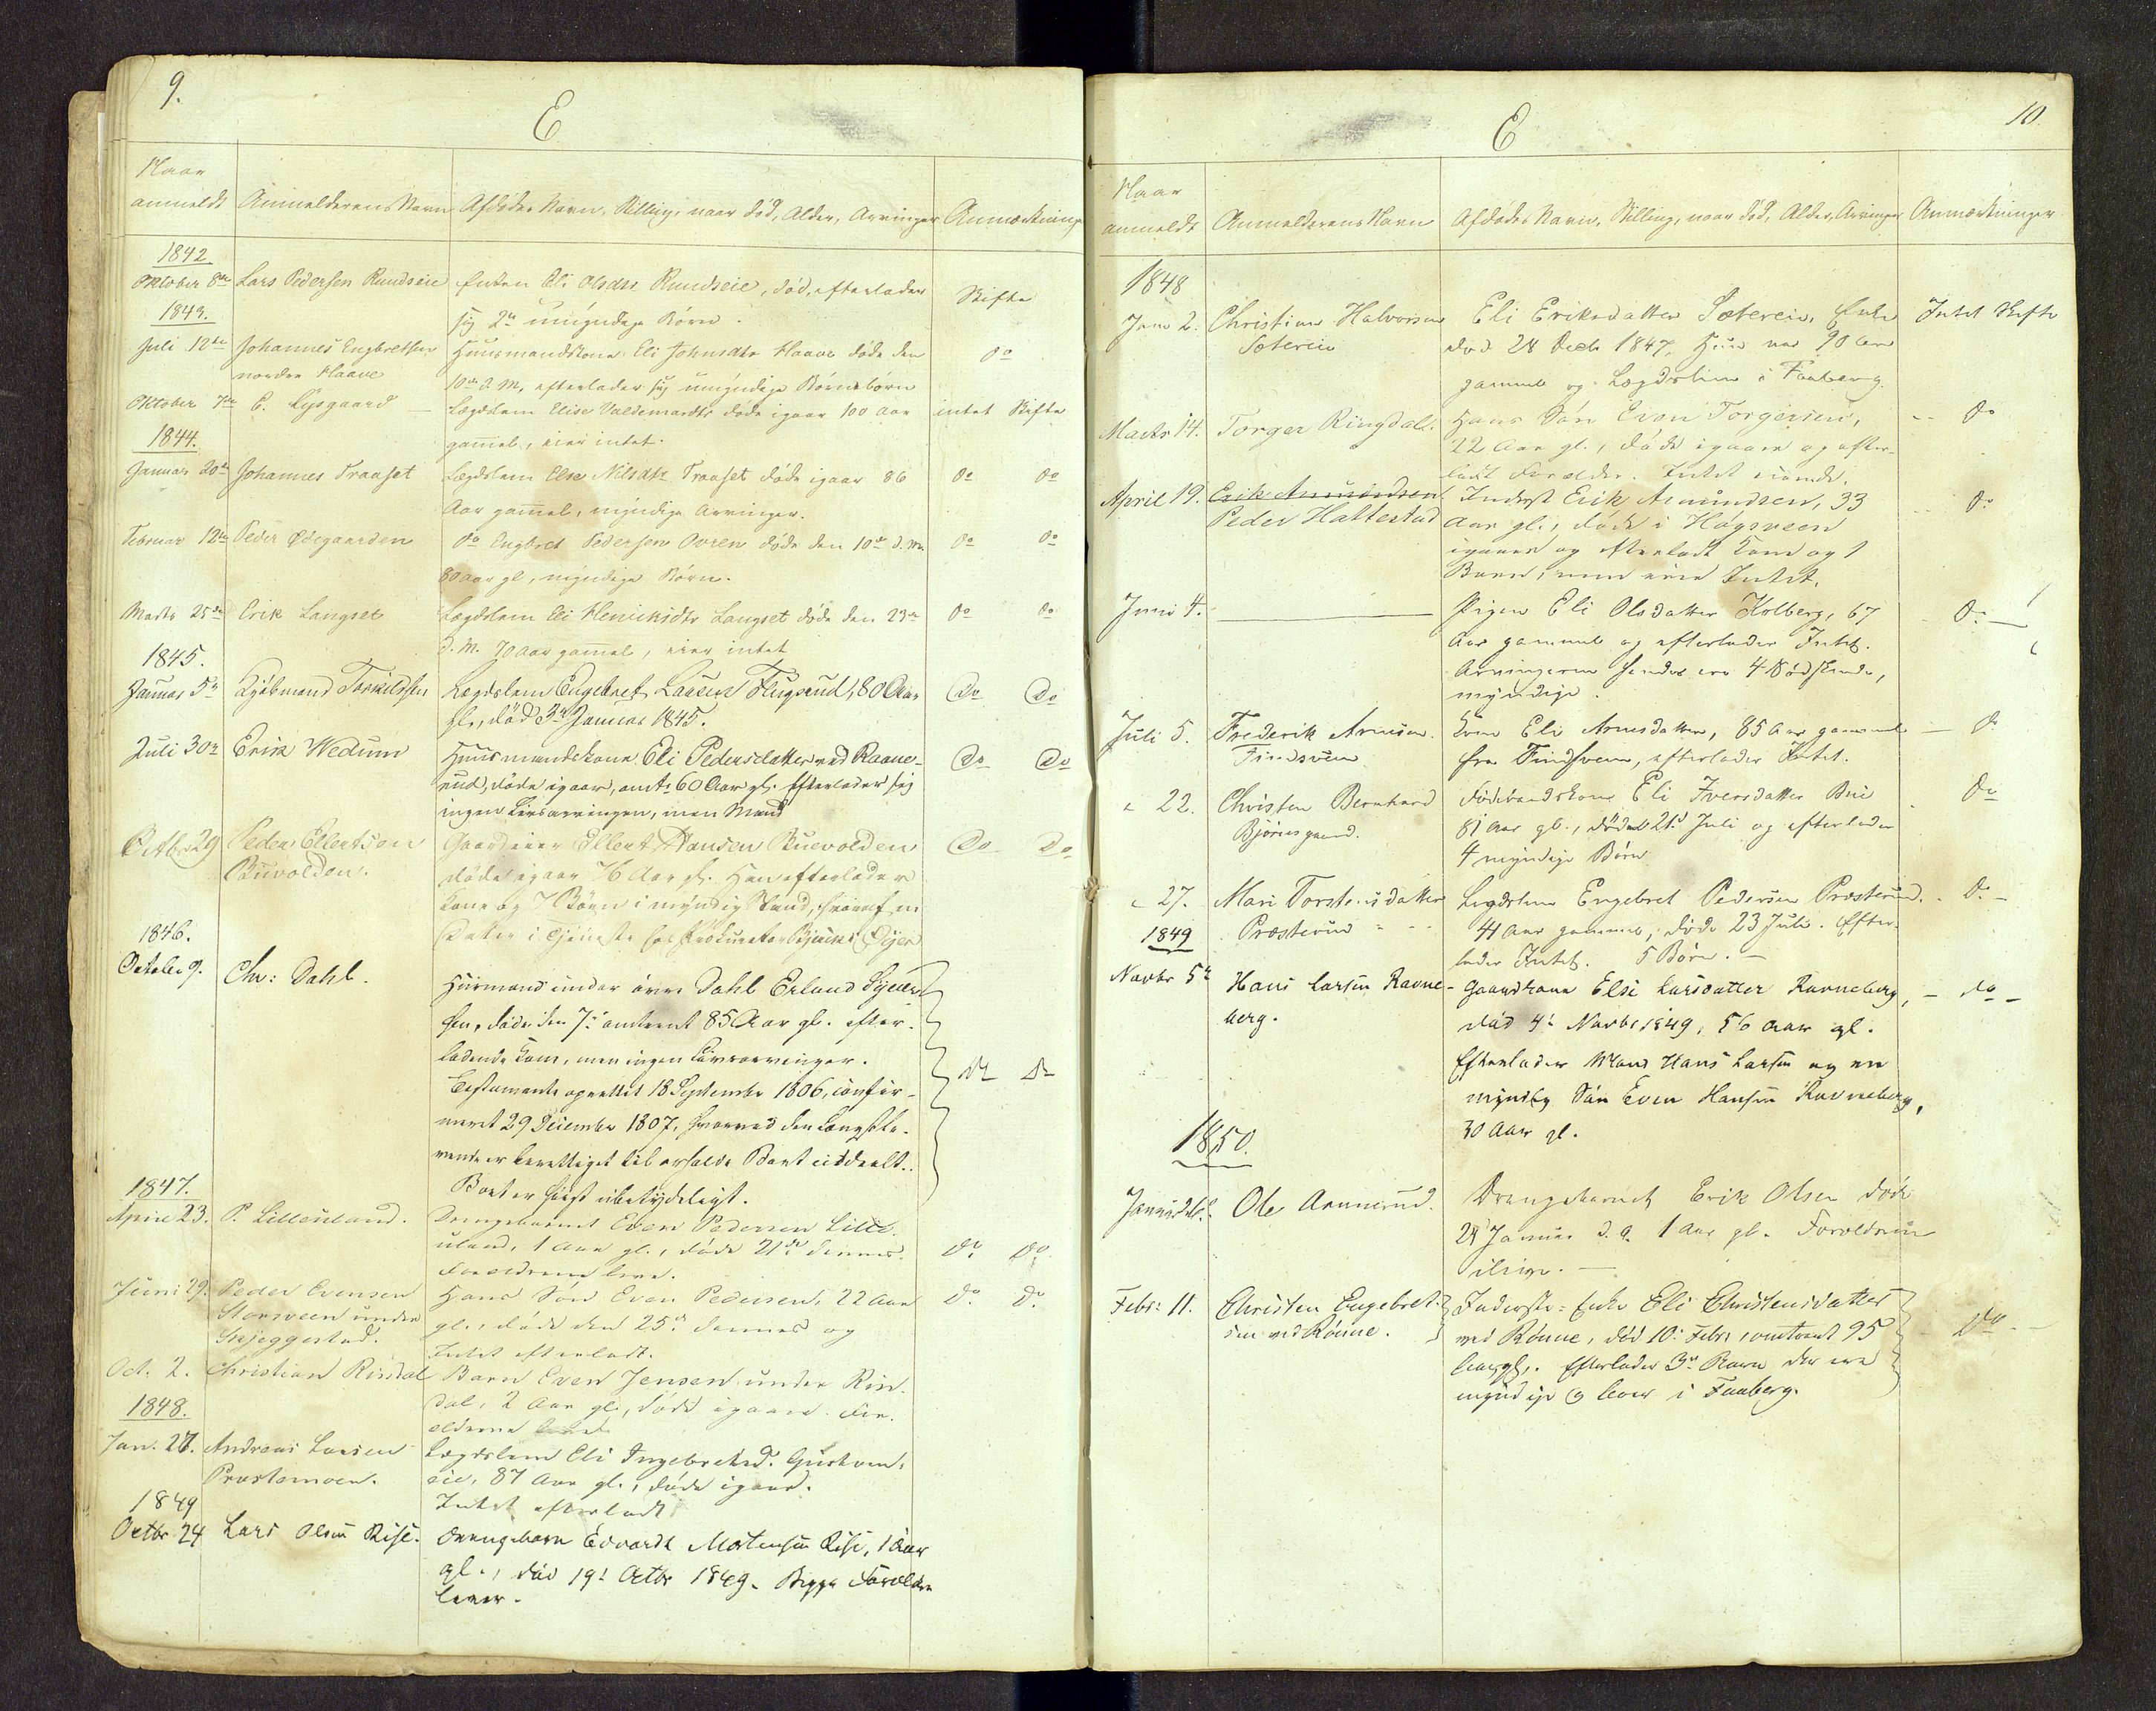 9.
E
Naar
anmeldt Anmelderens Navn Afdødes Navn, Stilling, naar død, Alder, Arvinger Anmærkninger
1842
Oktober 8de Lars Pedersen Rundseie Enken Eli Olsdtr Rundseie, død, efterlader Skifte
sig 2de umyndige Børn.
1843.
Juli 12te Johannes Engbretsen Huusmandskone Eli Johnsdtr Haave døde den do
nordre Haave 10de d. M., efterlader sig umyndige Børnebørn
Oktober 7de E. Lysgaard Lægdslem Elise Valdemarsdtr døde igaar 100 Aar intet Skifte
gamel, eier intet.
1844.
Januar 20de Johannes Traaset Lægdslem Else Nilsdtr Traaset døde igaar 86 do do
Aar gamel, myndige Arvinger.
Februar 12te Peder Ødegaarden do Engbret Pedersen Ovren døde den 10de d. M. do do
80 Aar gl, myndige Børn.
Marts 25de Erik Langset Lægdslem Eli Henriksdtr Langset døde den 23de do do
d. M. 70 Aar gamel, eier intet
1845.
Januar 5te Kjøbmand Lægdslem Engebret Larsen Flugsrud, 80 Aar Do Do
gl., død 3de Januar 1845.
Juli 30te Erik Wedum Huusmandskone Eli Pedersdatter ved Raane- Do Do
rud, døde igaar, omtr. 60 Aar gl. Efterlader sig
ingen Livsarvinger, men Mand
Octbr 29 Peder Ellertsen Gaardeier Ellert Hansen Buevolden Do Do
Buevolden. døde igaar 76 Aar gl. Han efterlader
Kone og 7 Børn i myndig Stand, hvoraf en
Datter i Tjeneste hos Prokurator Øyer
1846.
October 9. Chr: Dahl. Huusmand under øvre Dahl Erland Syver-
sen, døde den 7de omtrent 85 Aar gl. efter-
ladende Kone, men ingen Livsarvinger.
Testamente oprettet 18 September 1806, confir- Do Do
meret 29 December 1807, hvorved den Længstle-
vende er berettiget til at holde Boet udeelt.
Boet er høist ubetydeligt.
1847.
April 23. P. Lilleuland. Drengebarnet Even Pedersen Lille-
uland, 1 Aar gl., døde 21de dennes. Do Do
Forældrene leve.
Juni 29. Peder Evensen Hans Søn Even Pedersen, 22 Aar Do Do
Storsveen under gl., døde den 25de dennes og
Skjeggestad. Intet efterladt.
Oct. 2. Christian Rindal Barn Even Jensen under Rin-
dal, 2 Aar gl., døde igaar. For-
ældrene
1848.
Jan. 27. Andreas Larsen Lægdslem Eli Ingebretsd.
Prestemoen. eie, 87 Aar gl., døde igaar.
Intet efterladt
1849
Octbr 24 Lars Olsen Rise. Drengebarn Edvardt Mortensen Rise, 1 Aar
gl., død 19de Octbr 1849. Begge Forældre
lever.
10
E
Naar
anmeldt Anmelderens Navn Afdødes Navn, Stilling, naar død, Alder, Arvinger Anmærkninger
1848
Jan 2. Christian Halvorsen Eli Eriksdatter Sætereie, Enke Intet Skifte
Sætereie død 28 Decbr 1847, Hun var 90 Aar
gammel og Lægdslem i Faaberg.
Marts 14. Torger Ringdal. Hans Søn Even Torgersen, do
22 Aar gl., døde igaar og efter-
ladt Forældre. Intet eiende.
April 19. Erik Amundsen Inderst Erik Amundsen, 33 do
Peder Hattestad Aar gl., døde i Høgsveen
igaar og efterladt Kone og 1
Barn, men eier Intet.
Juni 4. Pigen Eli Olsdatter Kolberg, 67 Do
Aar gammel og efterlader Intet.
Arvingerne hendes ere 4 Sødskende,
myndige.
Juli 5. Frederik Arnesen Kone Eli Arnesdatter, 85 Aar gammel do
Findsveen fra Findsveen, efterlader Intet.
" 22. Christen Bernhard Føderaadskone Eli Iversdatter Bue Do
Bjørnsgaard. 81 Aar gl., døde 21de Juli og efterlader
4 myndige Børn
" 27. Mari Torstensdatter Lægdslem Engebret Pedersen Prosterud. Do
Prosterud 41 Aar gammel, døde 23 Juli. Efter-
lader Intet. 5 Børn.
1849
Novbr 5te Hans Larsen Ravne- Gaardkone Else Larsdatter Ravneberg, do
berg. død 4de Novbr 1849, 56 Aar gl.
Efterlader Mand Hans Larsen og en
myndig Søn Even Hansen Ravneberg,
30 Aar gl.
1850.
Ole Aannerud. Drengebarnet Erik Olsen døde
28 Januar d. A. 1 Aar gl. Forældrene
ilive.
Febr: 11. Christen Engebret- Inderste-Enke Eli Christensdatter
sen ved Rønne. ved Rønne, død 10de Febr, omtrent 95 Do
Aar gl. Efterlader 3de Børn der ere
myndige og lever i Faaberg.